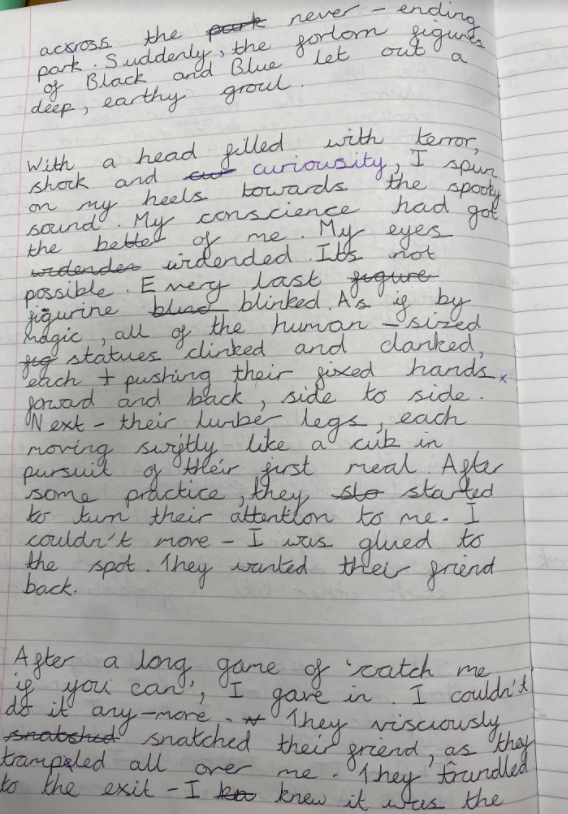 across the park never - ending
park. Suddenly, the forlorn figures
of Black and Blue let out a
deep, earthy groul.
With a head filled with terror,
shock and cur curiousity, I spun
on my heels towards the spooky
sound. My conscience had got
the better of me. My eyes
widended. Its not
possible. Every last figure
figurine blinked. As if by
magic, all of the human - sized
fig statues clinked and clanked,
each pushing their fixed hands
forward and back, side to side.
Next - their lumber legs, each
moving swiftly like a cub in
pursuit of their first meal. After
some practice, they sto started
to turn their attention to me. I
couldn't more - I was glued to
the spot. They wanted their friend
back.
After a long game of 'catch me
if you can', I gave in. I couldn't
do it any-more. They visciously
snatched snatched their friend, as they
trampled all over me. They trundled
to the exit - I knew it was the